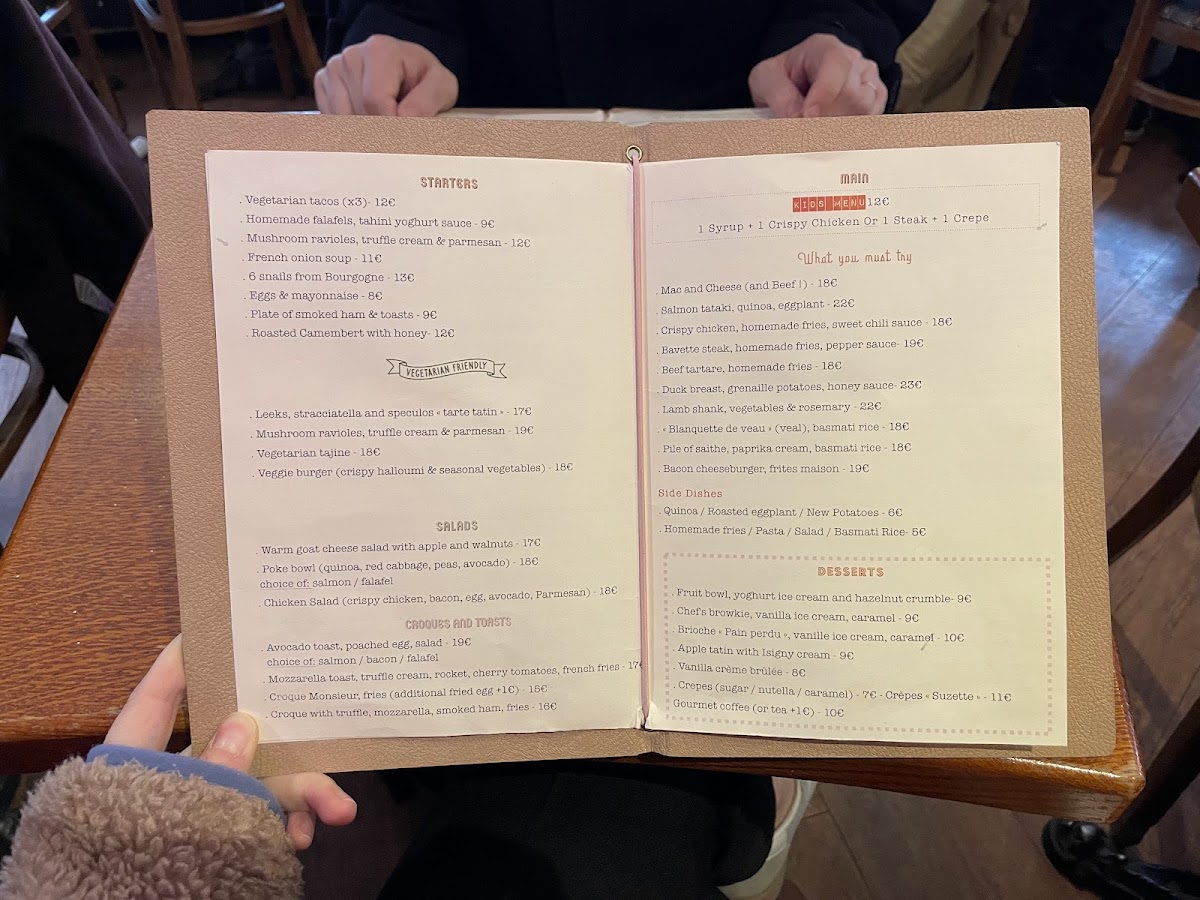 STARTERS
. Vegetarian tacos (x3)- 12€
. Homemade falafels, tahini yoghurt sauce - 9€
. Mushroom ravioles, truffle cream & parmesan - 12€
. French onion soup - 11€
. 6 snails from Bourgogne - 13€
. Eggs & mayonnaise - 8€
. Plate of smoked ham & toasts - 9€
. Roasted Camembert with honey- 12€
VEGETARIAN FRIENDLY
. Leeks, stracciatella and speculos « tarte tatin » - 17€
. Mushroom ravioles, truffle cream & parmesan - 19€
. Vegetarian tajine - 18€
. Veggie burger (crispy halloumi & seasonal vegetables) - 18€
SALADS
. Warm goat cheese salad with apple and walnuts - 17€
. Poke bowl (quinoa, red cabbage, peas, avocado) - 18€
choice of: salmon / falafel
. Chicken Salad (crispy chicken, bacon, egg, avocado, Parmesan) - 18€
CROQUES AND TOASTS
. Avocado toast, poached egg, salad - 19€
choice of: salmon / bacon / falafel
. Mozzarella toast, truffle cream, rocket, cherry tomatoes, french fries - 17€
. Croque Monsieur, fries (additional fried egg +1€) - 15€
. Croque with truffle, mozzarella, smoked ham, fries - 16€
MAIN
KIDS MENU 12€
1 Syrup + 1 Crispy Chicken Or 1 Steak + 1 Crepe
What you must try
. Mac and Cheese (and Beef !) - 18€
. Salmon tataki, quinoa, eggplant - 22€
. Crispy chicken, homemade fries, sweet chili sauce - 18€
. Bavette steak, homemade fries, pepper sauce- 19€
. Beef tartare, homemade fries - 18€
. Duck breast, grenaille potatoes, honey sauce- 23€
. Lamb shank, vegetables & rosemary - 22€
. « Blanquette de veau » (veal), basmati rice - 18€
. Pile of saithe, paprika cream, basmati rice - 18€
. Bacon cheeseburger, frites maison - 19€
Side Dishes
. Quinoa / Roasted eggplant / New Potatoes - 6€
. Homemade fries / Pasta / Salad / Basmati Rice- 5€
DESSERTS
. Fruit bowl, yoghurt ice cream and hazelnut crumble- 9€
. Chef's browkie, vanilla ice cream, caramel - 9€
. Brioche « Pain perdu », vanille ice cream, caramel - 10€
. Apple tatin with Isigny cream - 9€
. Vanilla crème brûlée - 8€
. Crepes (sugar / nutella / caramel) - 7€ - Crêpes « Suzette » - 11€
Gourmet coffee (or tea +1€) - 10€